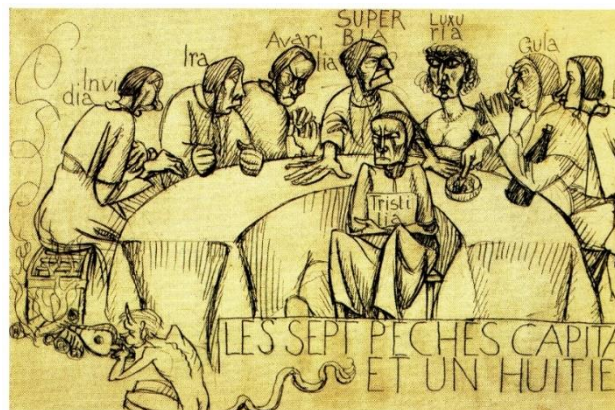 Invi
dia
Ira
Avari
tia
SUPER
BIA
Luxu
ria
Gula
Tristi
tia
LES SEPT PECHES CAPITA
ET UN HUITIE